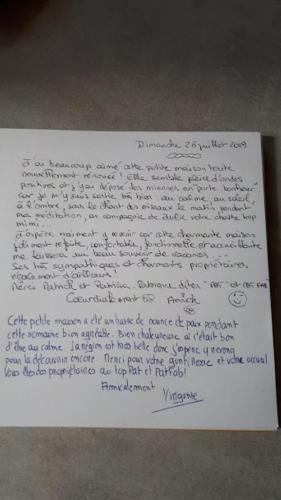 Dimanche 28 juillet 2019
J'ai beaucoup aimé cette petite maison toute
nouvellement rénovée ! Elle semble pleine d'ondes
positives et j'y ai déposé les miennes en porte bonheur
car je m'y suis sentie très bien au calme, au soleil,
à l'ombre, sous le chant des oiseaux le matin pendant
ma méditation, en compagnie de votre chatte trop
mimi...
J'espère vraiment y revenir car cette charmante maison
joliment refaite, confortable, fonctionnelle et accueillante
me laissera un beau souvenir de vacances...
Ses très sympathiques et charmants propriétaires,
également d'ailleurs !
Merci Patrick et Patricia, dites "PAT" et
Cordialement
Cette petite maison a été un havre de paix pendant
cette semaine bien agréable. Bien chaleureuse et c'était bon
d'être au calme. La région est très belle donc j'espère y revenir
pour la découvrir encore. Merci pour votre gentillesse et votre accueil
Vous êtes des propriétaires au top Pat et
Amicalement
Virginie